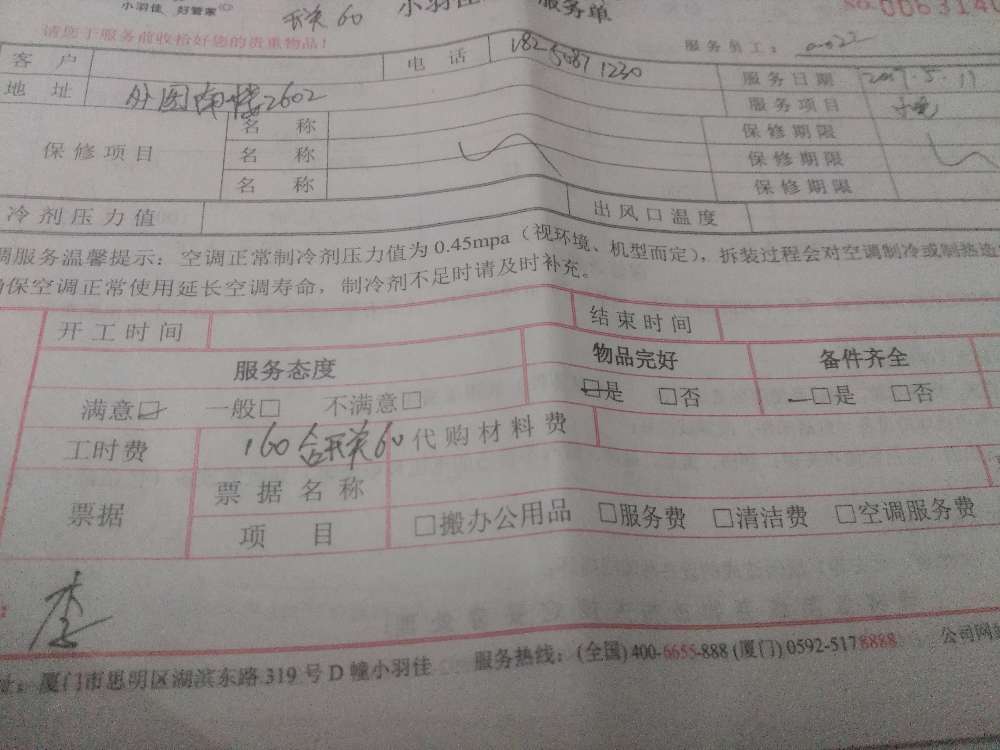 小羽佳 好管家
开关60
小羽佳 服务单
No.0063140
请您于服务前收拾好您的贵重物品!
服务员工:
客户 电话 182 5087 1230 服务日期 2017.5.11
地址 外图南楼2602 服务项目
保修项目 名称 保修期限
名称 保修期限
名称 保修期限
冷剂压力值 出风口温度
调服务温馨提示:空调正常制冷剂压力值为0.45mpa(视环境、机型而定),拆装过程会对空调制冷或制热造
确保空调正常使用延长空调寿命,制冷剂不足时请及时补充。
开工时间 结束时间
服务态度 物品完好 备件齐全
满意□ 一般□ 不满意□ □是 □否 □是 □否
工时费 160含开关60 代购材料费
票据 票据名称
项目 □搬办公用品 □服务费 □清洁费 □空调服务费
李
址:厦门市思明区湖滨东路319号D幢小羽佳 服务热线:(全国)400-6655-888(厦门)0592-5178888 公司网站